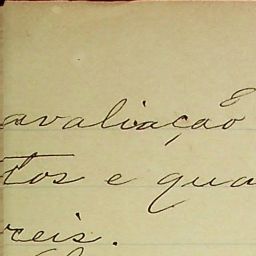 avaliação
tos e qua
reis.